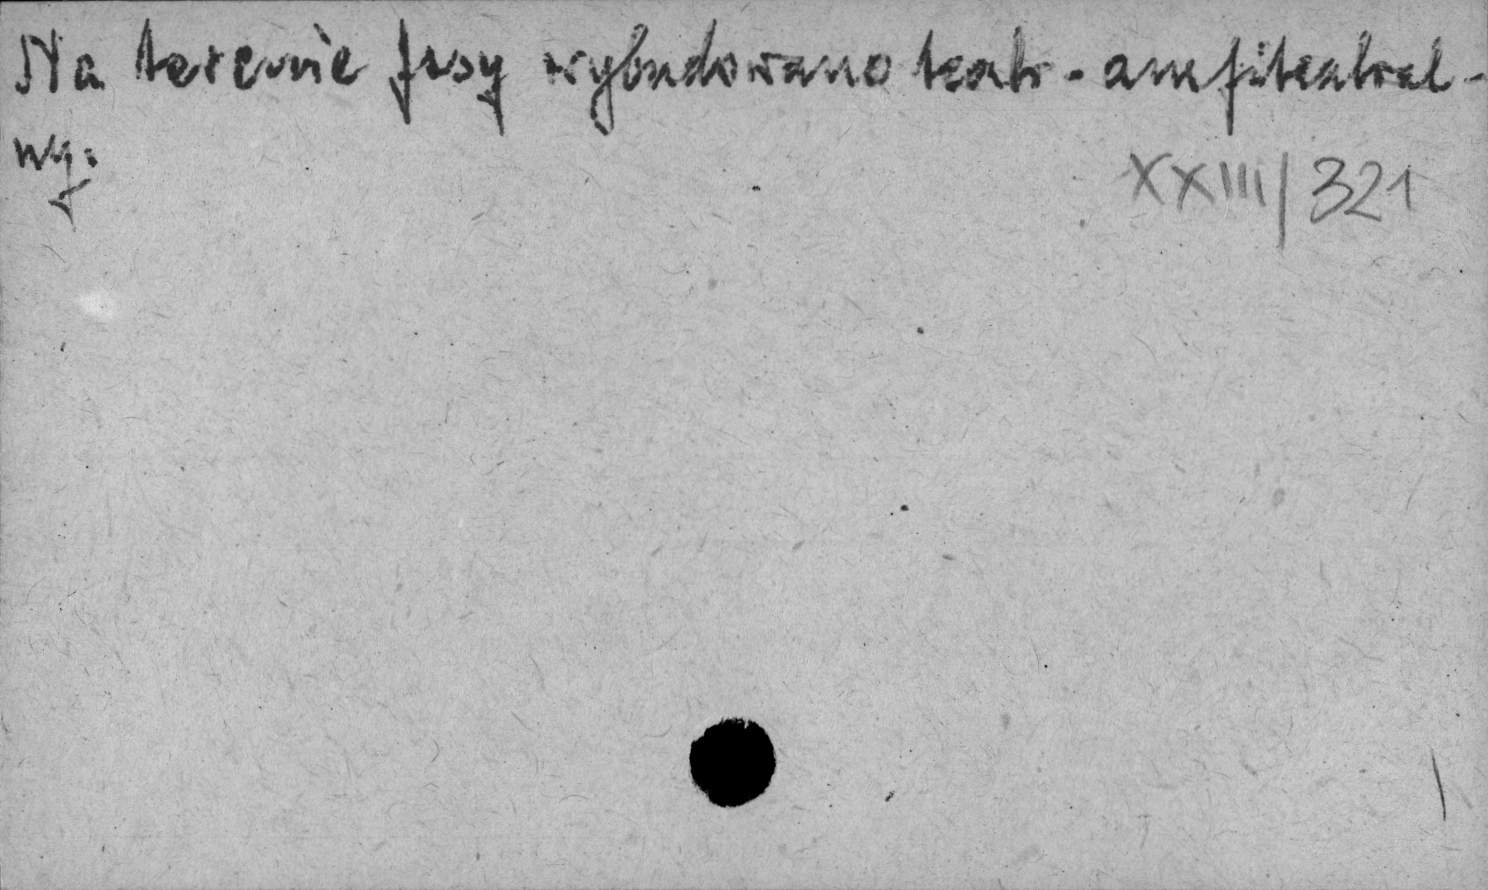 Na terenie fosy wybudowano teatr - amfiteatral-
ny.
XXIII/321